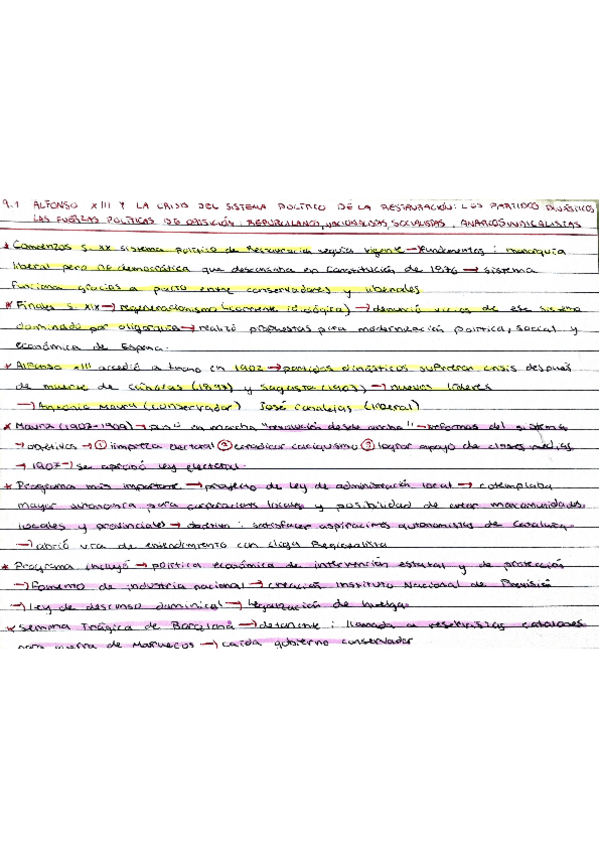 9.1 ALFONSO XIII Y LA CRISIS DEL SISTEMA POLÍTICO DE LA RESTAURACIÓN: LOS PARTIDOS DINÁSTICOS
LAS FUERZAS POLÍTICAS DE OPOSICIÓN: REPUBLICANOS, NACIONALISTAS, SOCIALISTAS, ANARCOSINDICALISTAS
* Comienzos s. XX sistema político de Restauración seguía vigente → fundamentos: monarquía
liberal pero no democrática que descansaba en Constitución de 1976 → sistema
funciona gracias a pacto entre conservadores y liberales
* Finales s. XIX → regeneracionismo (corriente ideológica) → denunció vicios de ese sistema
dominado por oligarquía → realizó propuestas para modernización política, social y
económica de España.
* Alfonso XIII accedió a trono en 1902 → partidos dinásticos sufrieron crisis después
de muerte de Cánovas (1897) y Sagasta (1903) → nuevos líderes
→ Antonio Maura (conservador) José Canalejas (liberal)
* Maura (1907-1909) → puso en marcha "revolución desde arriba" → reformas del sistema
→ objetivos → ① limpieza electoral ② erradicar caciquismo ③ lograr apoyo de clases medias
→ 1907 → se aprobó ley electoral.
* Programa más importante → proyecto de ley de administración local → contemplaba
mayor autonomía para corporaciones locales y posibilidad de crear mancomunidades
locales y provinciales → objetivo: satisfacer aspiraciones autonomistas de Cataluña
→ abrió vía de entendimiento con Lliga Regionalista
* Programa incluyó → política económica de intervención estatal y de protección
→ fomento de industria nacional → creación Instituto Nacional de Previsión
→ ley de descanso dominical → legalización de huelga
* Semana Trágica de Barcelona → detonante: llamada a reservistas catalanes
para guerra de Marruecos → caída gobierno conservador